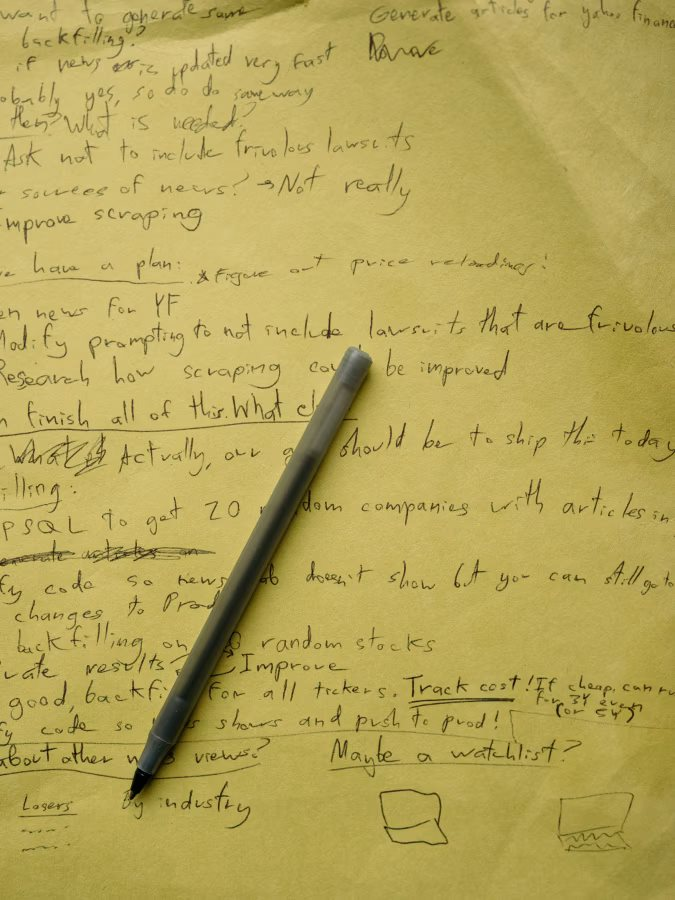 want to generate some
Generate articles for yahoo finance
backfilling?
if news is updated very fast
probably yes, so do do same way
then? What is needed?
Ask not to include frivolous lawsuits
sources of news? → Not really
improve scraping
have a plan: * Figure out price
news for YF
Modify prompting to not include lawsuits that are frivolous
Research how scraping be improved
finish all of this. What
Actually, our should be to ship this today
illing:
PSQL to get 20 companies with articles in
code so news doesn't show but you can still go to
changes to Prod
backfilling on random stocks
results Improve
good, for all tickers. Track cost! If cheap, can
for 3Y even
(or 5Y)
code so shows and push to prod!
about other views? Maybe a watchlist?
Losers By industry